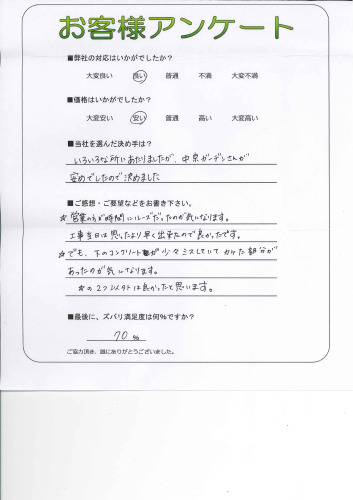 お客様アンケート
■弊社の対応はいかがでしたか？
大変良い 良い 普通 不満 大変不満
■価格はいかがでしたか？
大変安い 安い 普通 高い 大変高い
■当社を選んだ決め手は？
いろいろな所にあたりましたが、中京ガーデンさんが
安めでしたので決めました
■ご感想・ご要望などをお書き下さい。
☆営業の方が時間にルーズだったのが気になります。
工事当日は思ったより早く出来たので良かったです。
☆でも、下のコンクリートが少々ミスしていて かけた部分が
あったのが気になります。
☆の2つ以外は良かったと思います。
■最後に、ズバリ満足度は何％ですか？
70 ％
ご協力頂き、誠にありがとうございました。